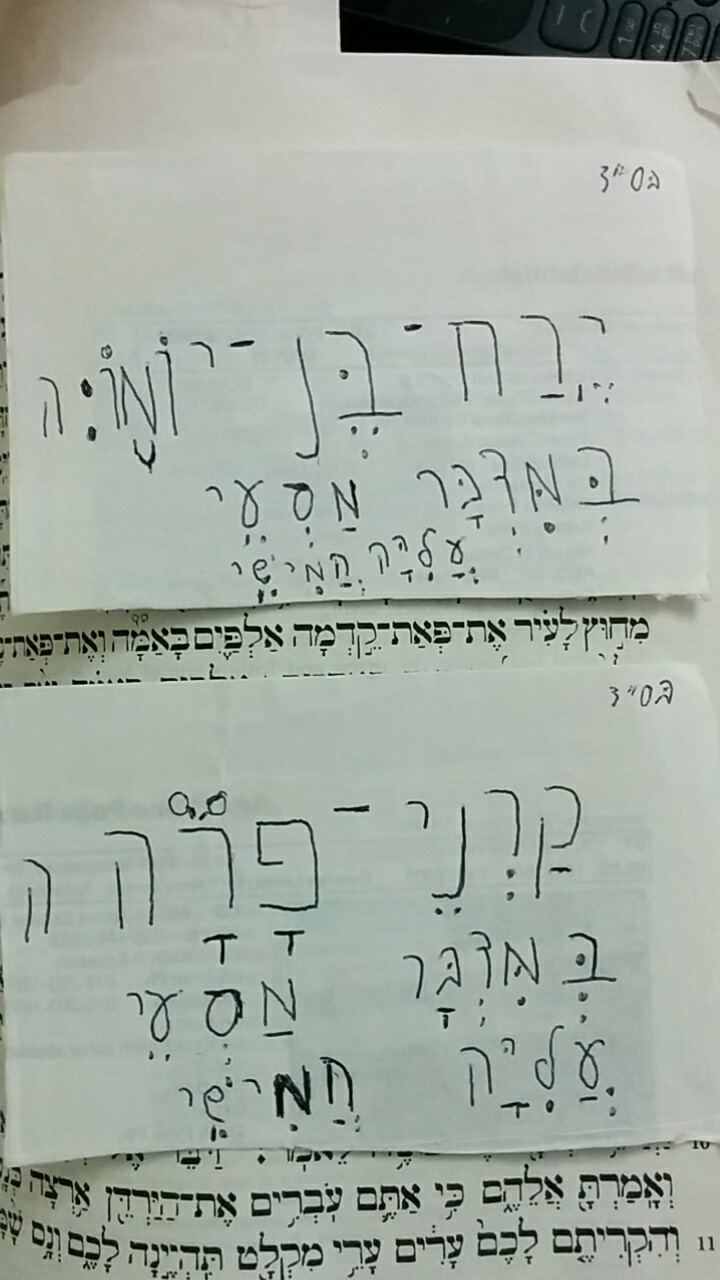 בס"ד
יֶרַח־בֶּן־יוֹמוֹ׃ ה
בְּמִדְבַּר מַסְעֵי
עֲלִיָּה חֲמִישִׁי
מִחוּץ לָעִיר אֶת־פְּאַת־קֵדְמָה אַלְפַּיִם בָּאַמָּה וְאֶת־פְּאַת־
בס"ד
קַרְנֵי־פָרָה ה
בְּמִדְבַּר מַסְעֵי
עֲלִיָּה חֲמִישִׁי
וְאָמַרְתָּ אֲלֵהֶם כִּי אַתֶּם עֹבְרִים אֶת־הַיַּרְדֵּן אַרְצָה
11 וְהִקְרִיתֶם לָכֶם עָרִים עָרֵי מִקְלָט תִּהְיֶינָה לָכֶם וְנָס